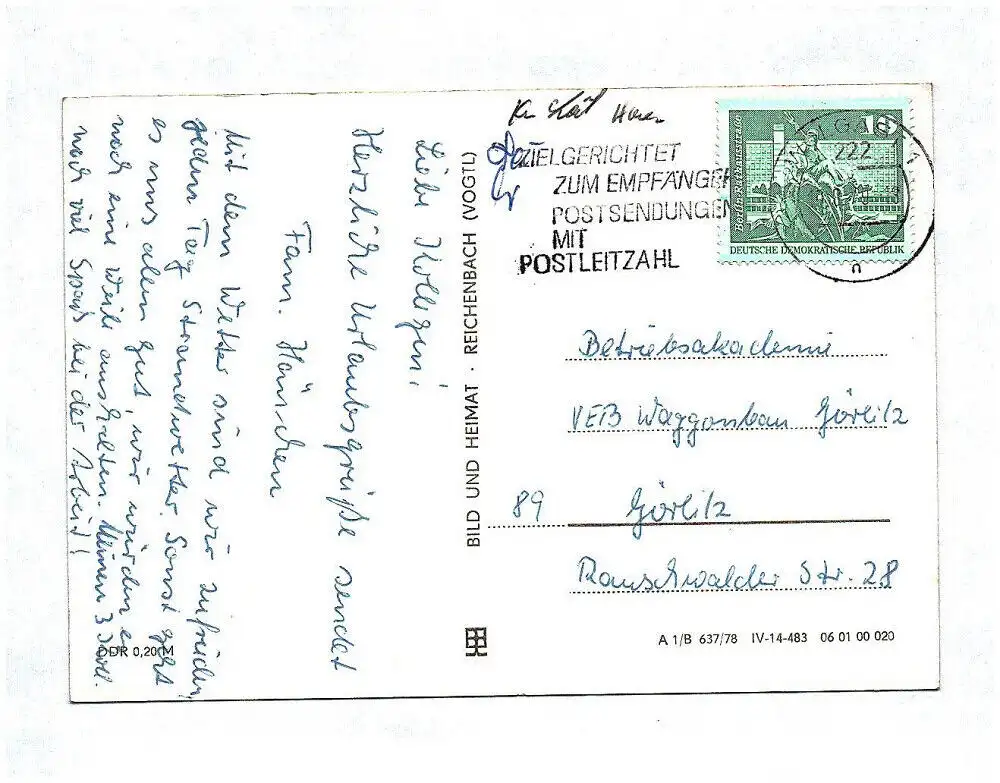 Liebe Kollegen!
Herzliche Urlaubsgrüße sendet
Fam. Hänschen
Mit dem Wetter sind wir zufrieden,
jeden Tag Strandwetter. Sonst geht
es uns allen gut, wir würden es
noch eine Weile aushalten. Meinen 3
noch viel Spaß bei der Arbeit!
DDR 0,20 M
BILD UND HEIMAT · REICHENBACH (VOGTL)
ZIELGERICHTET
ZUM EMPFÄNGER
POSTSENDUNGEN
MIT
POSTLEITZAHL
WOLGAST 1
222
10
DEUTSCHE DEMOKRATISCHE REPUBLIK
Betriebsakademie
VEB Waggonbau Görlitz
89 Görlitz
Rauschwalder Str. 28
A 1/B 637/78 IV-14-483 06 01 00 020